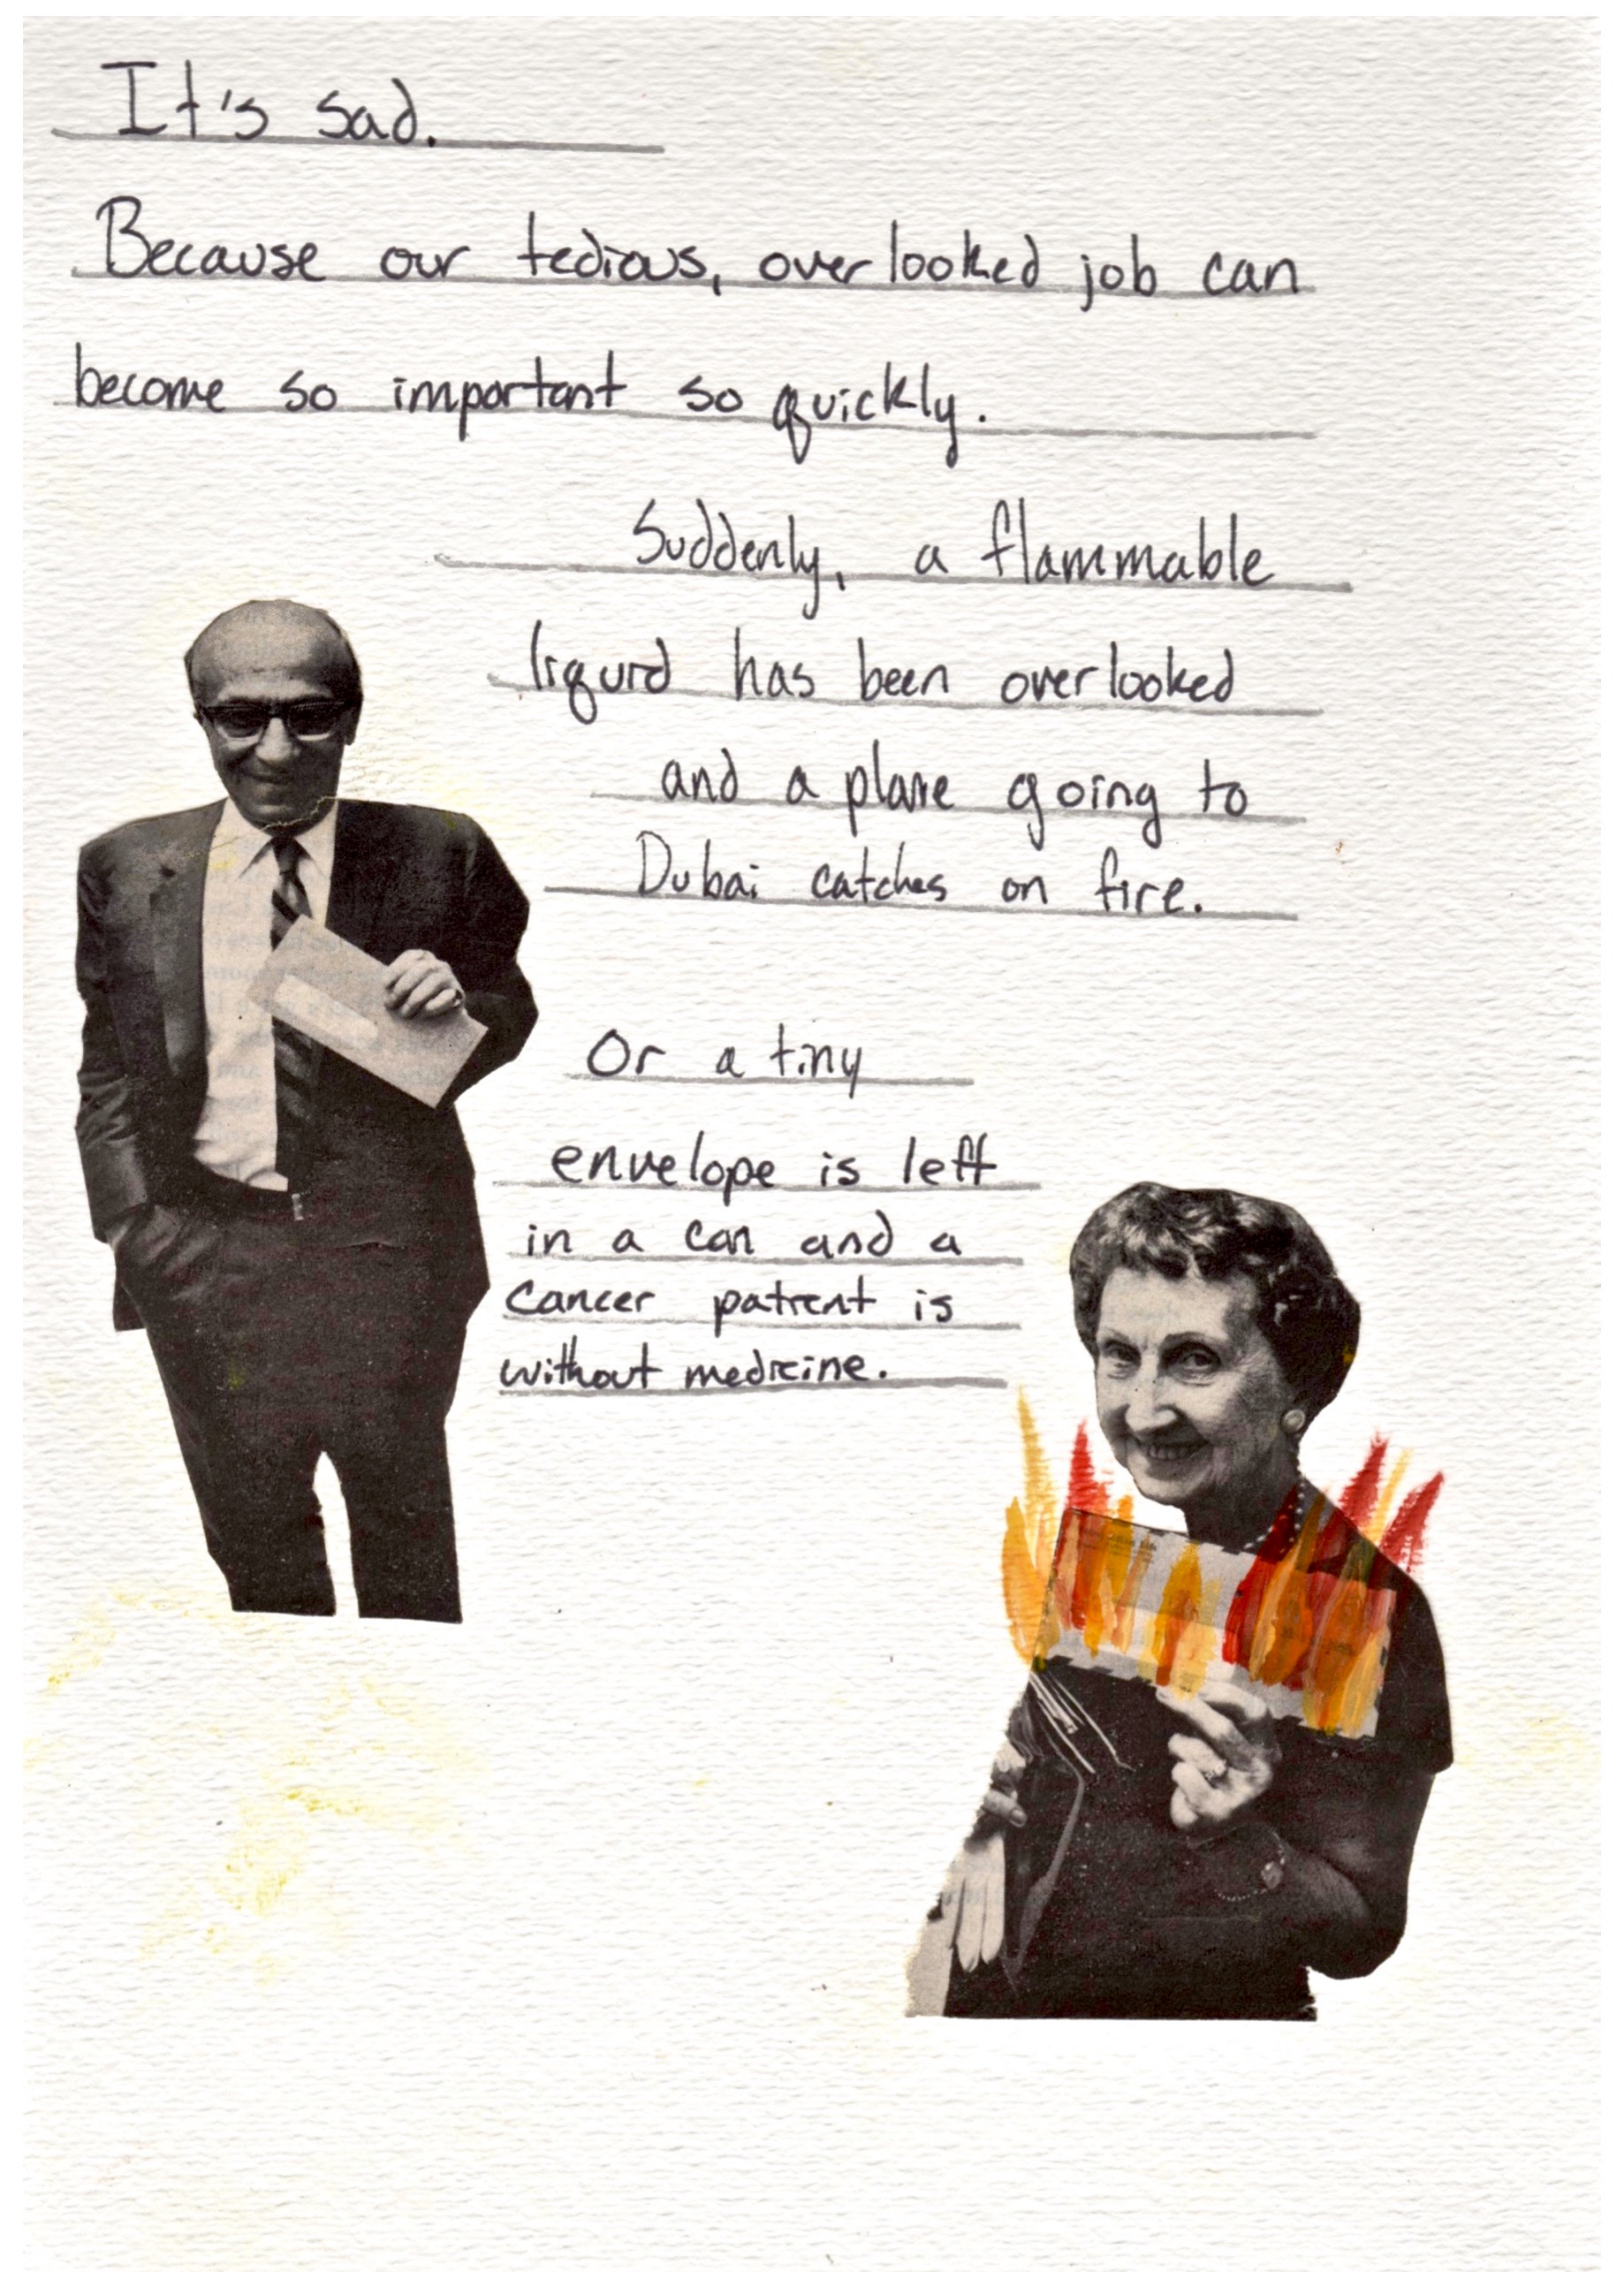 It's sad.
Because our tedious, overlooked job can
become so important so quickly.
Suddenly, a flammable
liquid has been overlooked
and a plane going to
Dubai catches on fire.
Or a tiny
envelope is left
in a can and a
cancer patient is
without medicine.